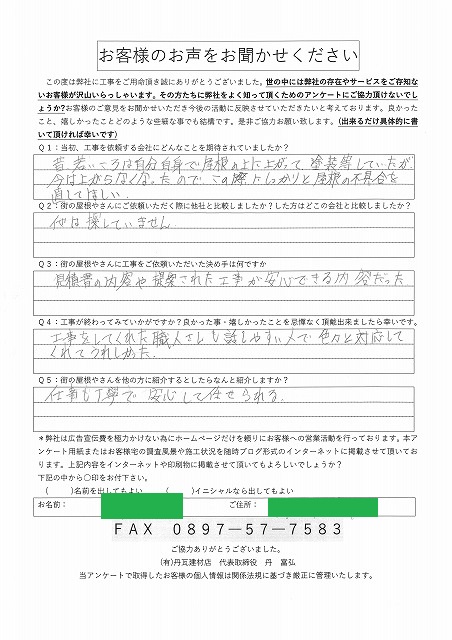 お客様のお声をお聞かせください
この度は弊社に工事をご用命頂き誠にありがとうございました。世の中には弊社の存在やサービスをご存知な
いお客様が沢山いらっしゃいます。その方たちに弊社をよく知って頂くためのアンケートにご協力頂けないでし
ょうか?お客様のご意見をお聞かせいただき今後の活動に反映させていただきたいと考えております。良かった
こと、嬉しかったことどのような些細な事でも結構です。是非ご協力お願い致します。(出来るだけ具体的に書
いて頂ければ幸いです)
Q1：当初、工事を依頼する会社にどんなことを期待されていましたか?
昔、若いころは自分自身で屋根の上に上がって、塗装等していたが、
今は上がらなくなったので、この際にしっかりと屋根の不具合を
直してほしい。
Q2：街の屋根やさんにご依頼いただく際に他社と比較しましたか?した方はどこの会社と比較しましたか?
他は探していません
Q3：街の屋根やさんに工事をご依頼いただいた決め手は何ですか
見積書の内容や提案された工事が安心できる内容だった
Q4：工事が終わってみていかがですか?良かった事・嬉しかったことを忌憚なく頂戴出来ましたら幸いです。
工事をしてくれた職人さんも話しやすい人で色々と対応して
くれてうれしかった。
Q5：街の屋根やさんを他の方に紹介するとしたらなんと紹介しますか?
仕事も丁寧で安心して任せられる。
＊弊社は広告宣伝費を極力かけない為にホームページだけを頼りにお客様への営業活動を行っております。本ア
ンケート用紙またはお客様宅の調査風景や施工状況を随時ブログ形式のインターネットに掲載させて頂いてお
ります。上記内容をインターネットや印刷物に掲載させて頂いてもよろしいでしょうか?
下記の中から〇印をお付下さい。
(　　)名前を出してもよい　　(　　)イニシャルなら出してもよい
お名前：　　ご住所：
FAX 0897-57-7583
ご協力ありがとうございました。
(有)丹瓦建材店　代表取締役　丹　富弘
当アンケートで取得したお客様の個人情報は関係法規に基づき厳正に管理いたします。